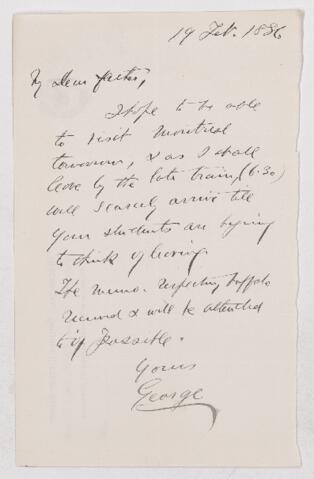 19 Feb. 1886
My Dear father,
I hope to be able
to visit Montreal
tomorrow, & as I shall
leave by the late train, (6.30)
will scarcely arrive till
your students are beginning
to think of leaving.
The memo. respecting buffalo
received & will be attended
to if possible.
Yours
George